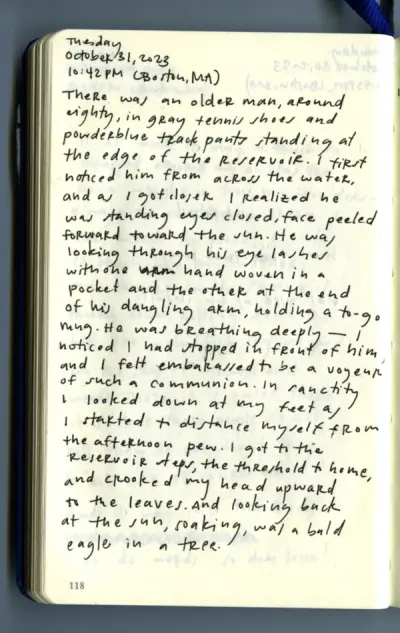 Tuesday
October 31, 2023
10:42 PM (Boston, MA)
There was an older man, around
eighty, in gray tennis shoes and
powderblue track pants standing at
the edge of the reservoir. I first
noticed him from across the water,
and as I got closer I realized he
was standing eyes closed, face peeled
forward toward the sun. He was
looking through his eye lashes
with one arm hand woven in a
pocket and the other at the end
of his dangling arm, holding a to-go
mug. He was breathing deeply — I
noticed I had stopped in front of him,
and I felt embarassed to be a voyeur
of such a communion. In sanctity
I looked down at my feet as
I started to distance myself from
the afternoon pew. I got to the
reservoir steps, the threshold to home,
and crooked my head upward
to the leaves. And looking back
at the sun, soaking, was a bald
eagle in a tree.
118